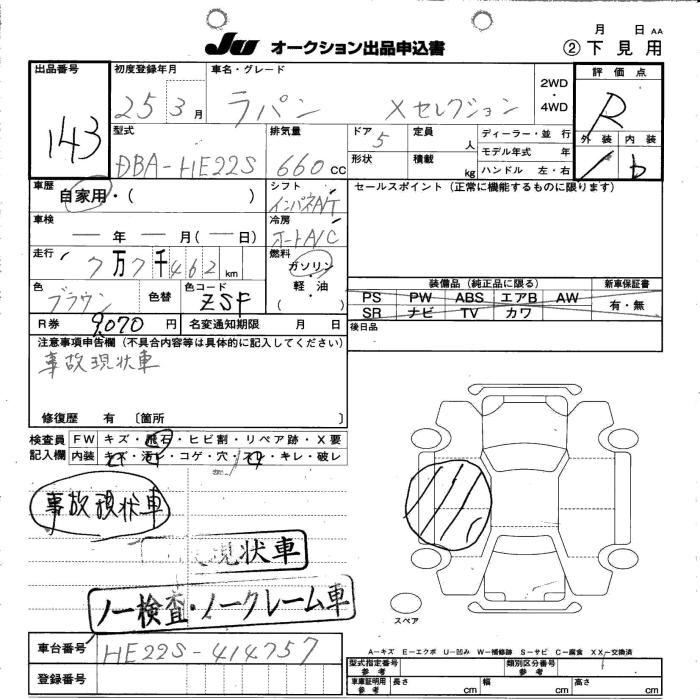 月 日 AA
JU オークション出品申込書 ② 下見用
出品番号 初度登録年月 車名・グレード 2WD・4WD 評価点
143 25 3月 ラパン Xセレクション R
型式 排気量 ドア 定員 ディーラー・並行 外装 内装
DBA-HE22S 660cc 5 人 モデル年式 年 b
形状 積載 kg ハンドル 左・右
車歴 シフト セールスポイント(正常に機能するものに限ります)
自家用・( ) インパネA/T
車検 冷房
ー 年 ー 月(ー日) オートA/C
走行 燃料
7万7千462km ガソリン・軽油( )
色 色替 色コード 装備品(純正品に限る) 新車保証書
ブラウン ZSF PS PW ABS エアB AW 有・無
SR ナビ TV カワ
R券 9,070円 名変通知期限 月 日 後日品
注意事項申告欄(不具合内容等は具体的に記入してください)
事故現状車
修復歴 有 〔箇所 〕
検査員記入欄 FW キズ・飛石・ヒビ割・リペア跡・X要
内装 キズ・汚レ・コゲ・穴・スレ・キレ・破レ
事故現状車
現状車
ノー検査・ノークレーム車
スペア
車台番号 HE22S-414757
A-キズ E-エクボ U-凹み W-補修跡 S-サビ C-腐食 XX-交換済
登録番号 型式指定番号 参考 類別区分番号 参考
車庫証明用 参考 長さ cm 幅 cm 高さ cm